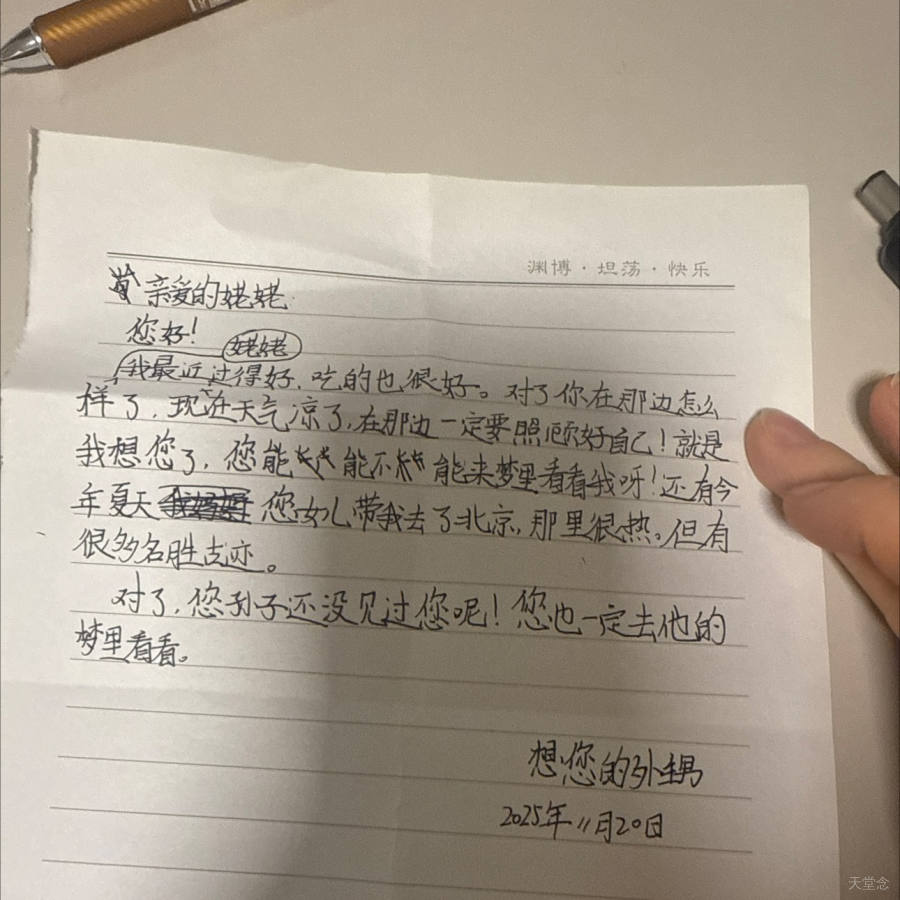 渊博·坦荡·快乐
亲爱的姥姥
您好！
姥姥
我最近过得好，吃的也很好。对了你在那边怎么
样了，现在天气凉了，在那边一定要照顾好自己！就是
我想您了，您能能不能来梦里看看我呀！还有今
年夏天您女儿带我去了北京，那里很热。但有
很多名胜古迹。
对了，您孙子还没见过您呢！您也一定去他的
梦里看看。
想您的外甥
2025年11月20日
天堂念